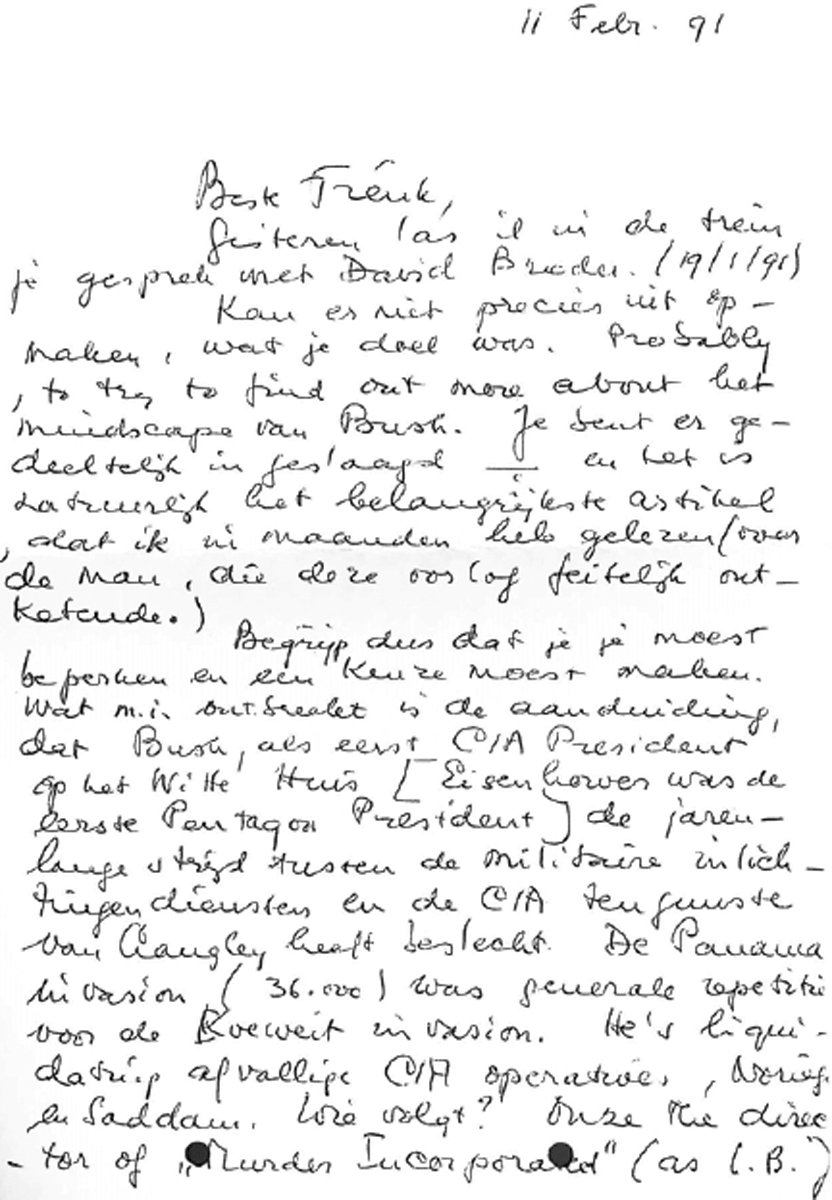 11 Febr. 91
Beste Frénk,
Gisteren las ik in de trein
je gesprek met David Broder. (19/1/91)
Kan er niet precies uit op-
maken, wat je doel was. Probably
, to try to find out more about het
mindscape van Bush. Je bent er ge-
deeltelijk in geslaagd — en het is
natuurlijk het belangrijkste artikel
, dat ik in maanden heb gelezen (over
de man, die deze oorlog feitelijk ont-
ketende.)
Begrijp dus dat je je moest
beperken en een keuze moest maken.
Wat m.i. ontbreekt is de aanduiding,
dat Bush, als eerst CIA President
op het Witte Huis [Eisenhower was de
eerste Pentagon President] de jaren-
lange strijd tussen de militaire inlich-
tingendiensten en de CIA ten gunste
van Langley heeft beslecht. De Panama
invasion (36.000) was generale repetitie
voor de Koeweit invasion. He's liqui-
dating afvallige CIA operatives, Norieg
en Saddam. Wie volgt? Onze the direc
- tor of „Murder Incorporated" (as L.B.)